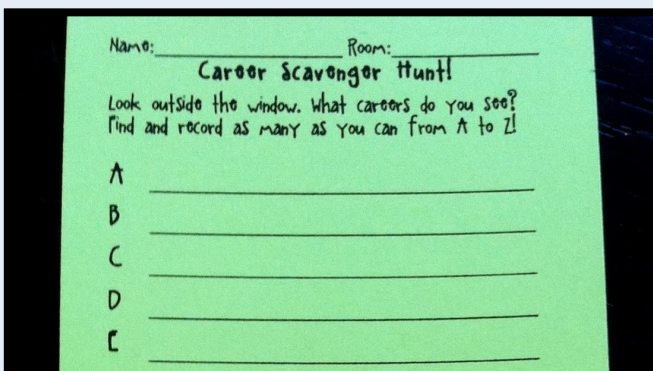 Name: Room:
Career Scavenger Hunt!
Look outside the window. What careers do you see?
Find and record as many as you can from A to Z!
A
B
C
D
E